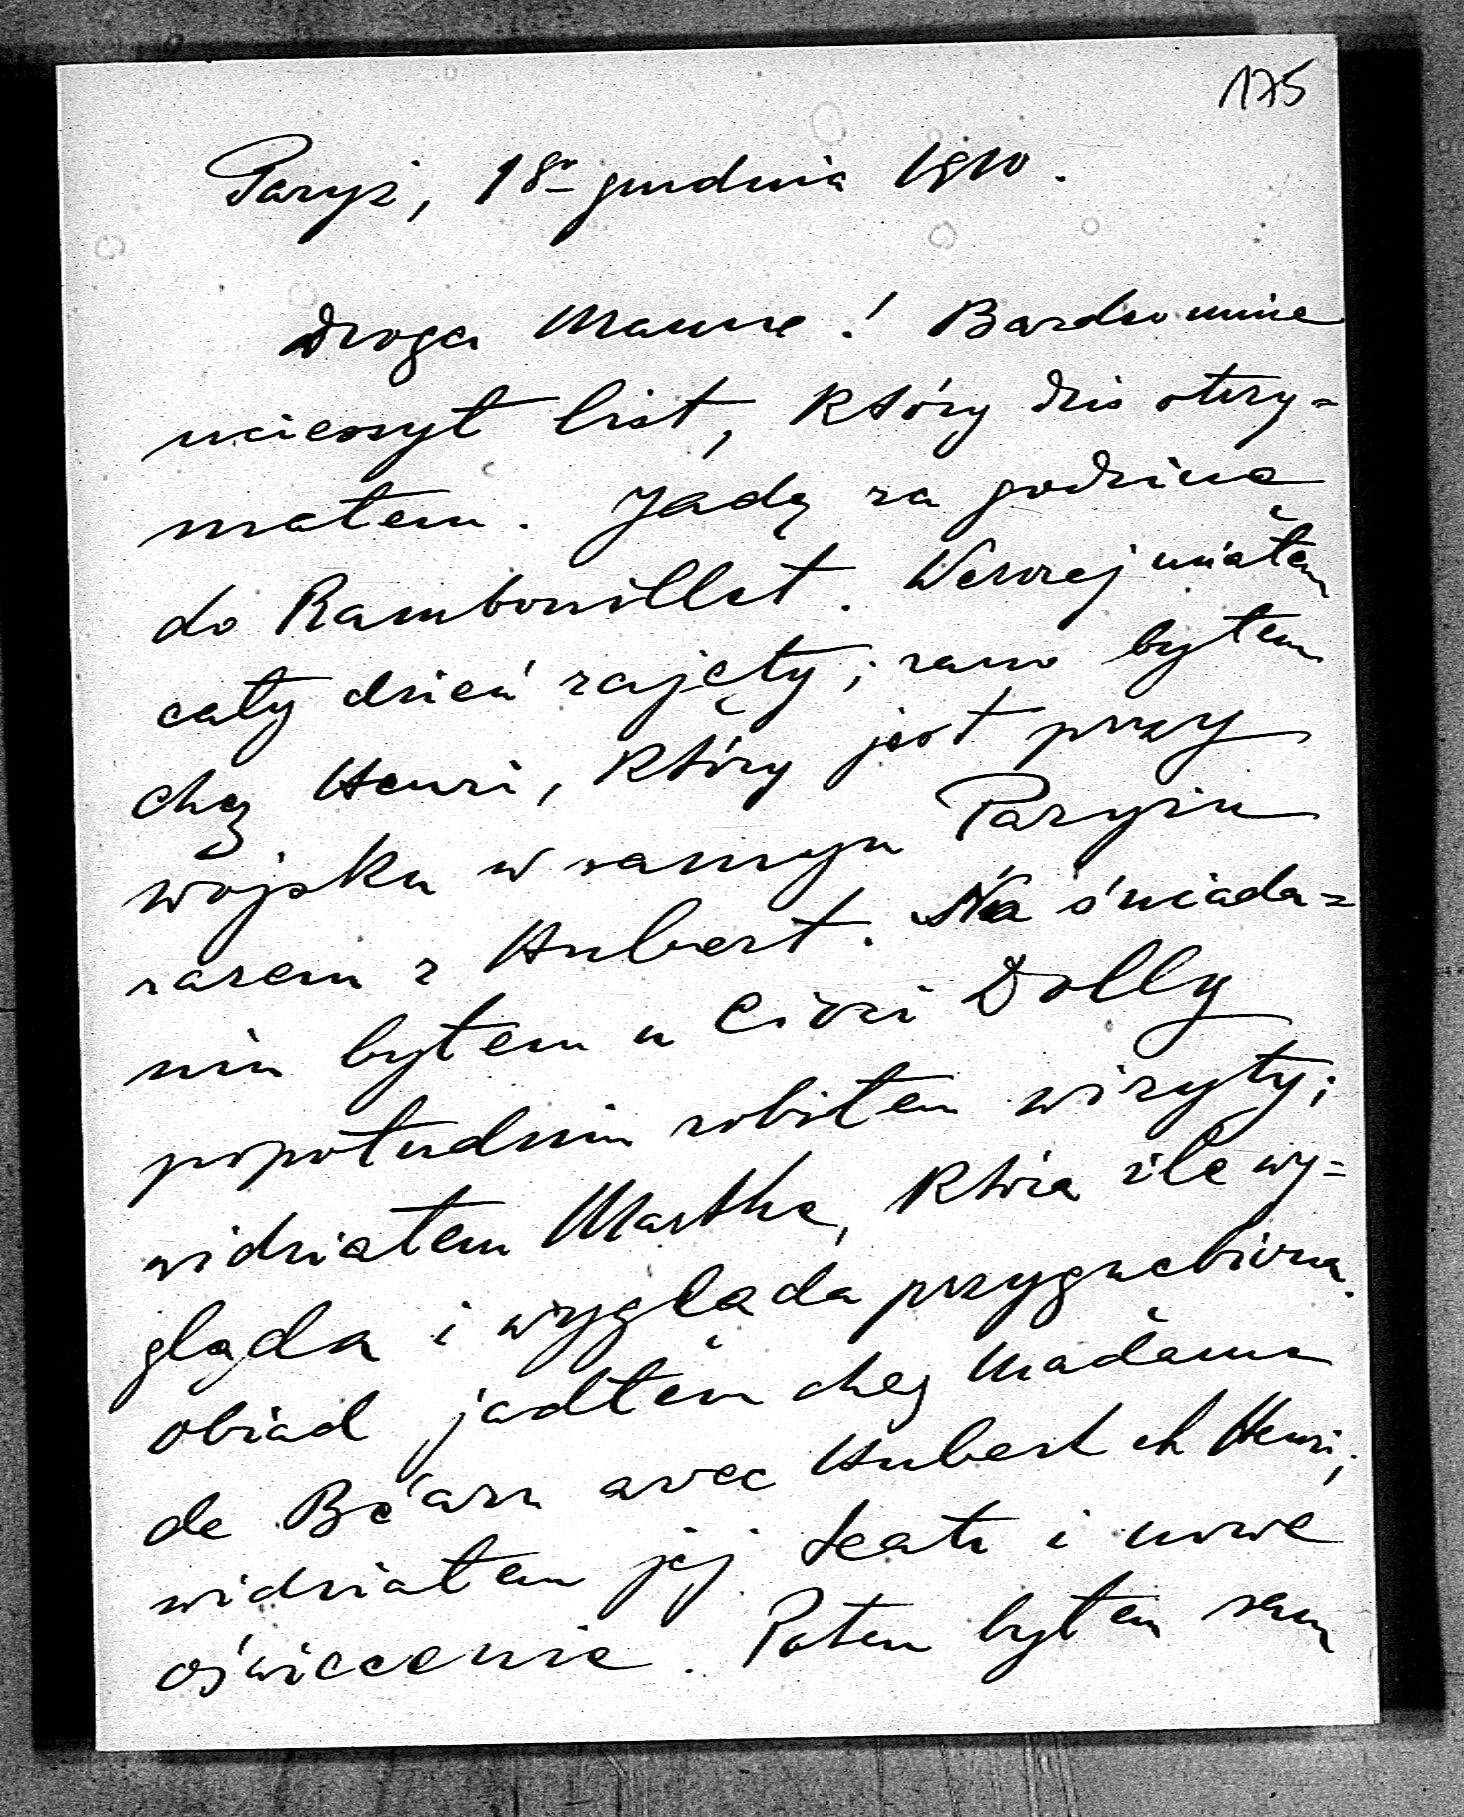 175
Paryż, 18º grudnia 1910.
Droga Mamme! Bardzo mnie
ucieszył list, który dziś otrzy=
małem. Jadę za godzinę
do Rambouillet. Wczoraj miałem
cały dzień zajęty; rano byłem
chez Henri, który jest przy
wojsku w samym Paryżu
razem z Hubert. Na śniada=
niu byłem u Cioci Dolly
popołudniu robiłem wizyty;
widziałem Marthe, która źle wy=
gląda i wygląda przygnębiona.
obiad jadłem chez Madame
de Béarn avec Hubert et Henri;
widziałem jej teatr i nowe
oświecenie. Potem byłem sam